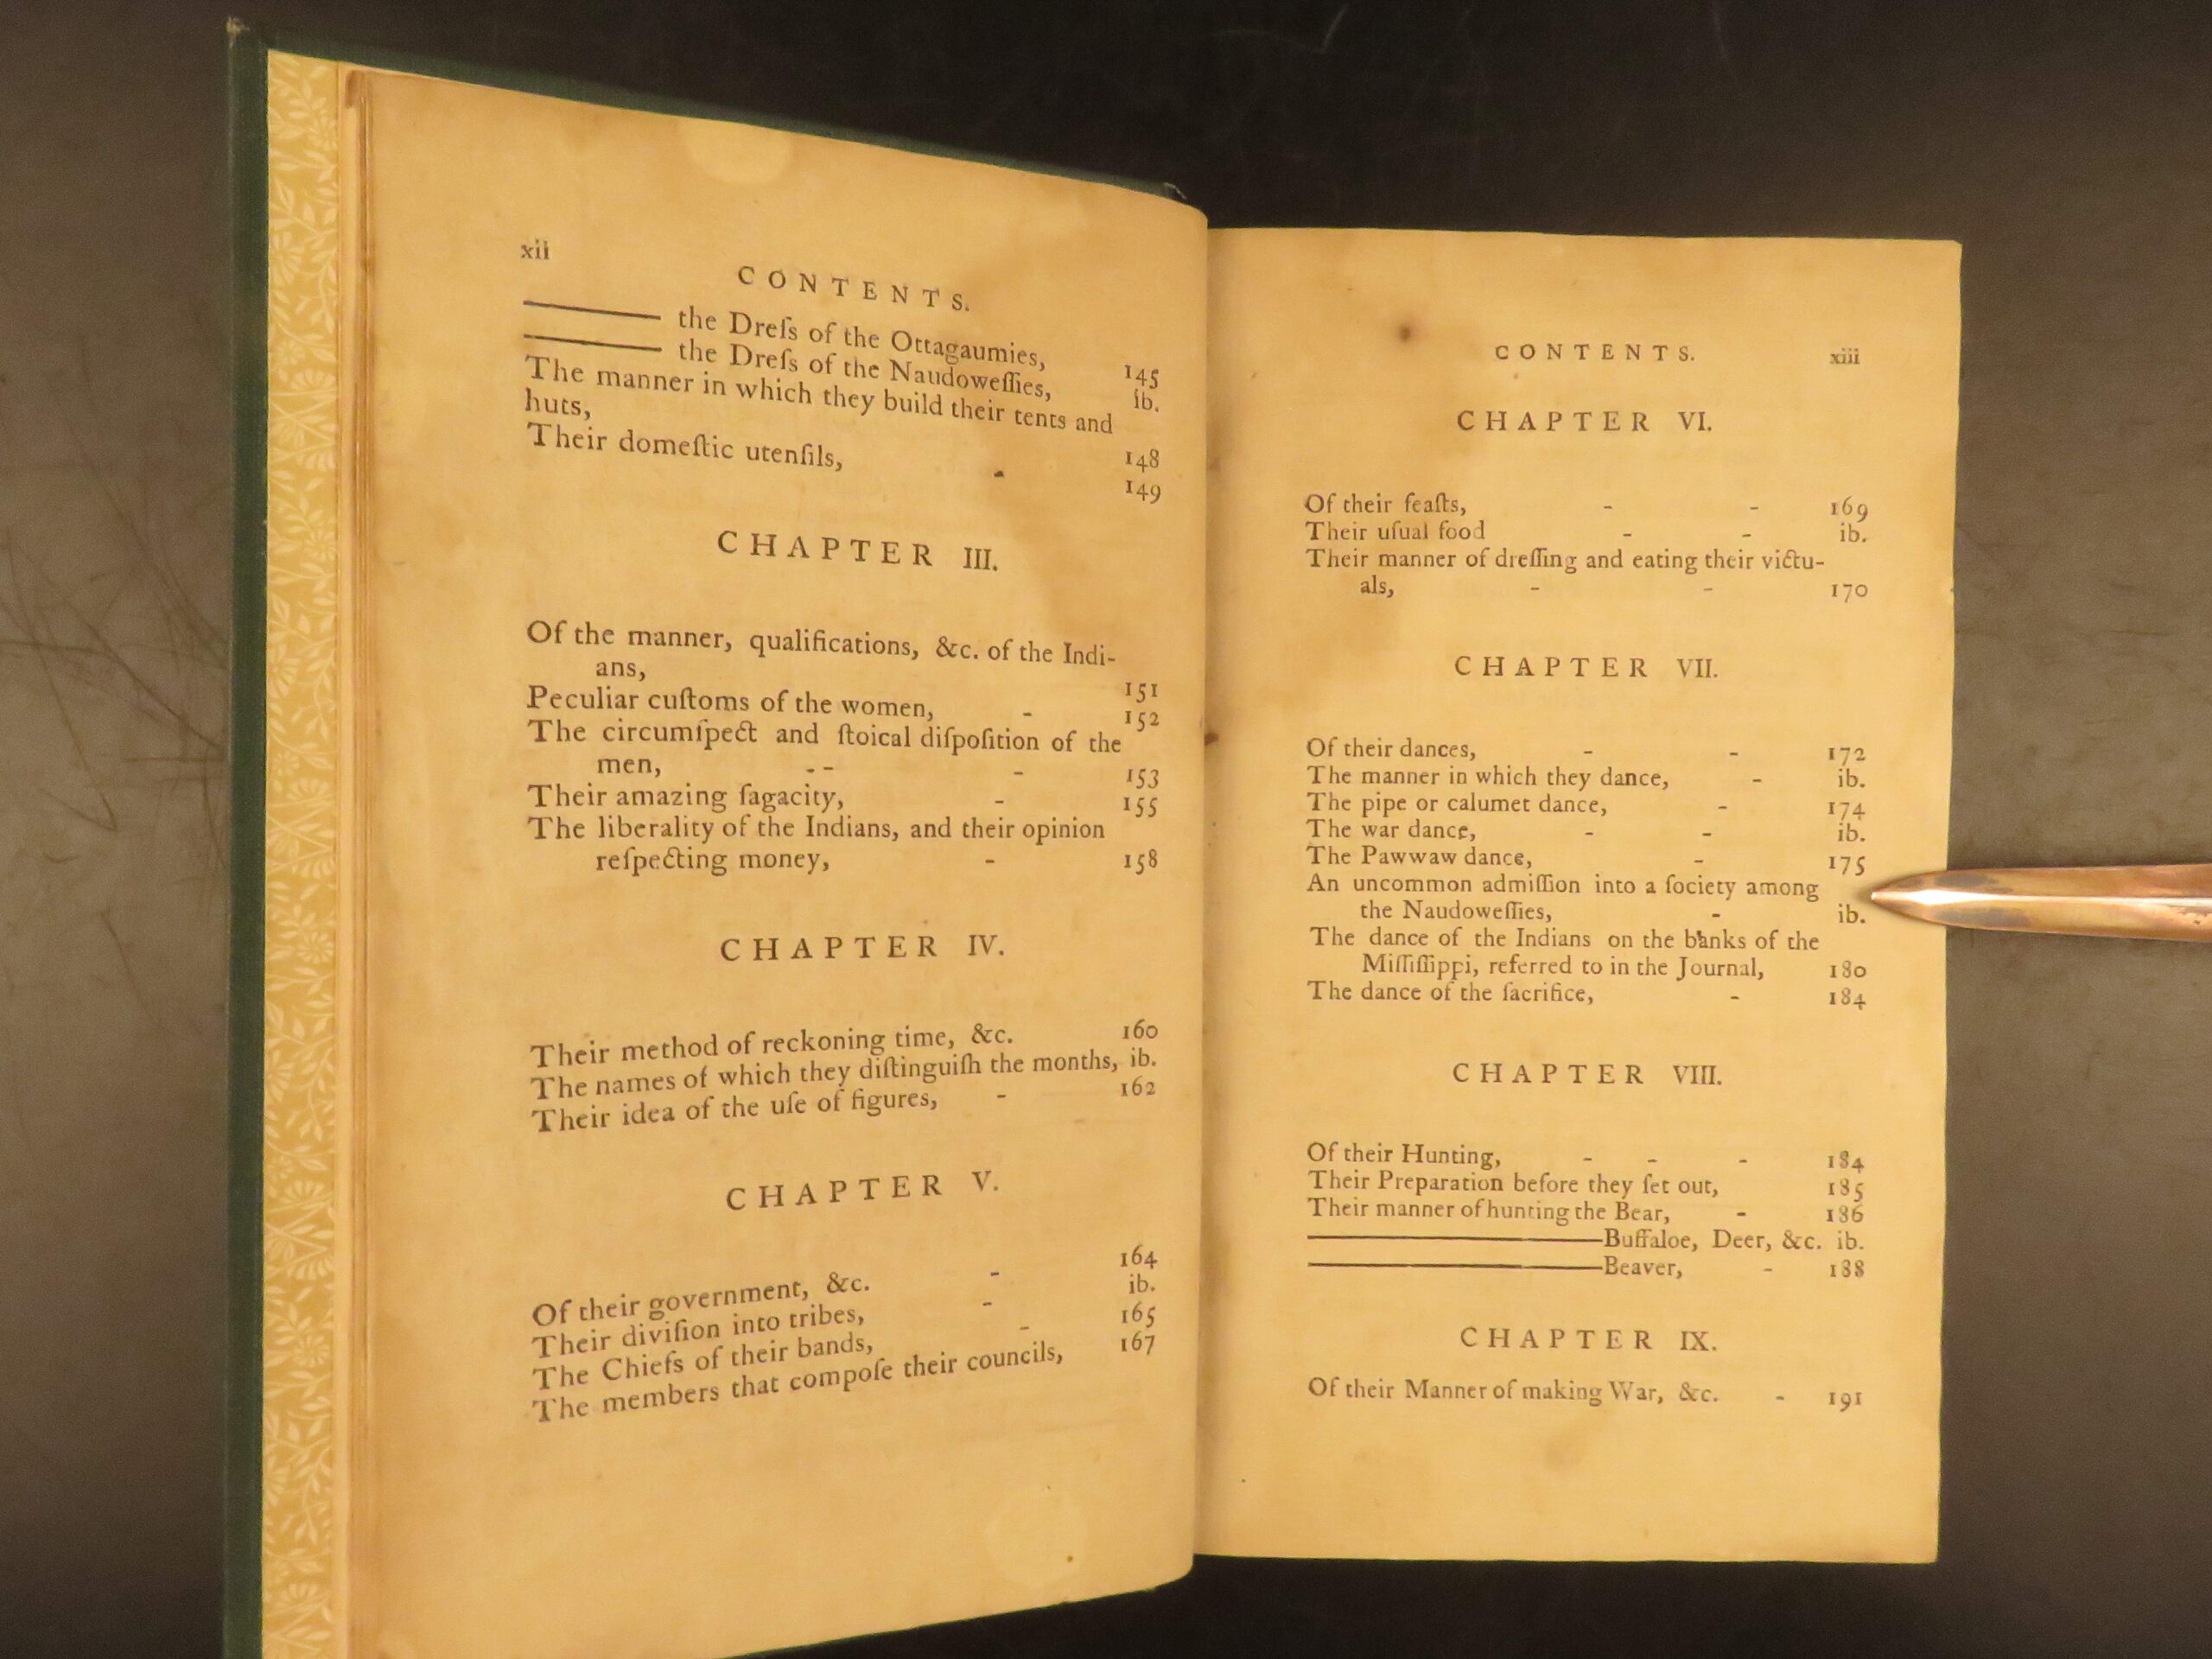 xii
CONTENTS.
——— the Dreſs of the Ottagaumies, 145
——— the Dreſs of the Naudoweſſies, ib.
The manner in which they build their tents and
huts, 148
Their domeſtic utenſils, - 149
CHAPTER III.
Of the manner, qualifications, &c. of the Indi-
ans, 151
Peculiar cuſtoms of the women, - 152
The circumſpect and ſtoical diſpoſition of the
men, -- - 153
Their amazing ſagacity, - 155
The liberality of the Indians, and their opinion
reſpecting money, - 158
CHAPTER IV.
Their method of reckoning time, &c. 160
The names of which they diſtinguiſh the months, ib.
Their idea of the uſe of figures, - 162
CHAPTER V.
Of their government, &c. - 164
Their diviſion into tribes, - ib.
The Chiefs of their bands, - 165
The members that compoſe their councils, 167
CONTENTS. xiii
CHAPTER VI.
Of their feaſts, - - 169
Their uſual food - - ib.
Their manner of dreſſing and eating their victu-
als, - - 170
CHAPTER VII.
Of their dances, - - 172
The manner in which they dance, - ib.
The pipe or calumet dance, - 174
The war dance, - - ib.
The Pawwaw dance, - 175
An uncommon admiſſion into a ſociety among
the Naudoweſſies, - ib.
The dance of the Indians on the banks of the
Miſſiſſippi, referred to in the Journal, 180
The dance of the ſacrifice, - 184
CHAPTER VIII.
Of their Hunting, - - - 184
Their Preparation before they ſet out, 185
Their manner of hunting the Bear, - 186
———Buffaloe, Deer, &c. ib.
———Beaver, - 188
CHAPTER IX.
Of their Manner of making War, &c. - 191